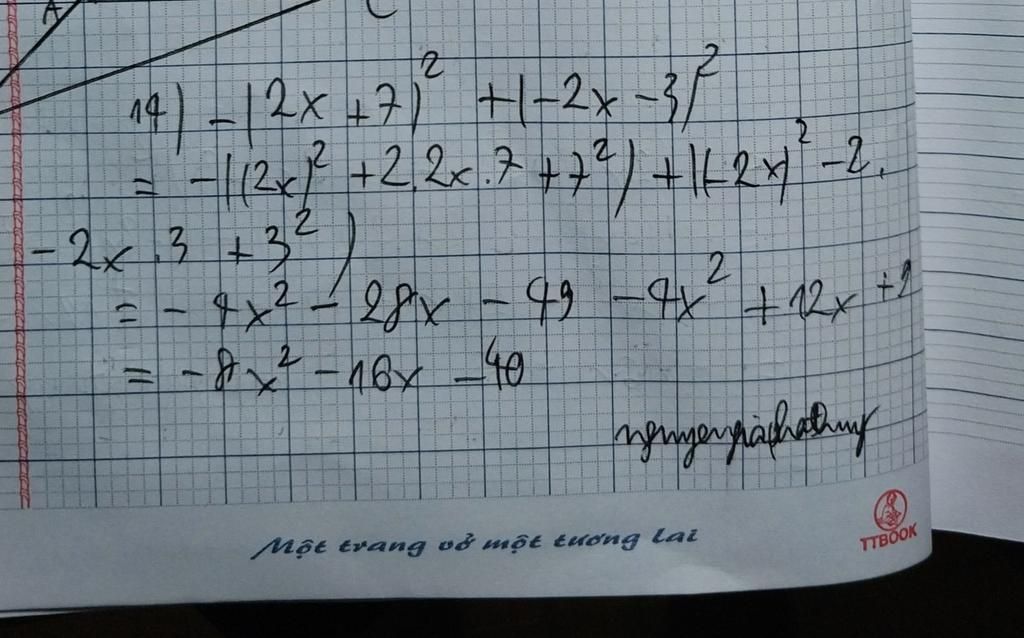 A
C
14) -(2x +7)² +(-2x -3)²
= -((2x)² +2.2x.7 +7²) +((-2x)² -2.
-2x.3 +3²)
= -4x² -28x -49 -4x² +12x +9
= -8x² -16x -40
Một trang vở một tương lai
TTBOOK